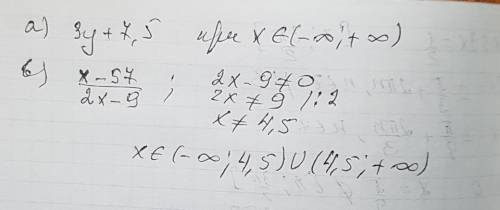 а) 3y + 7,5 при x ∈ (-∞; +∞)
в) x-57 / 2x-9 ; 2x - 9 ≠ 0
2x ≠ 9 /:2
x ≠ 4,5
x ∈ (-∞; 4,5) ∪ (4,5; +∞)